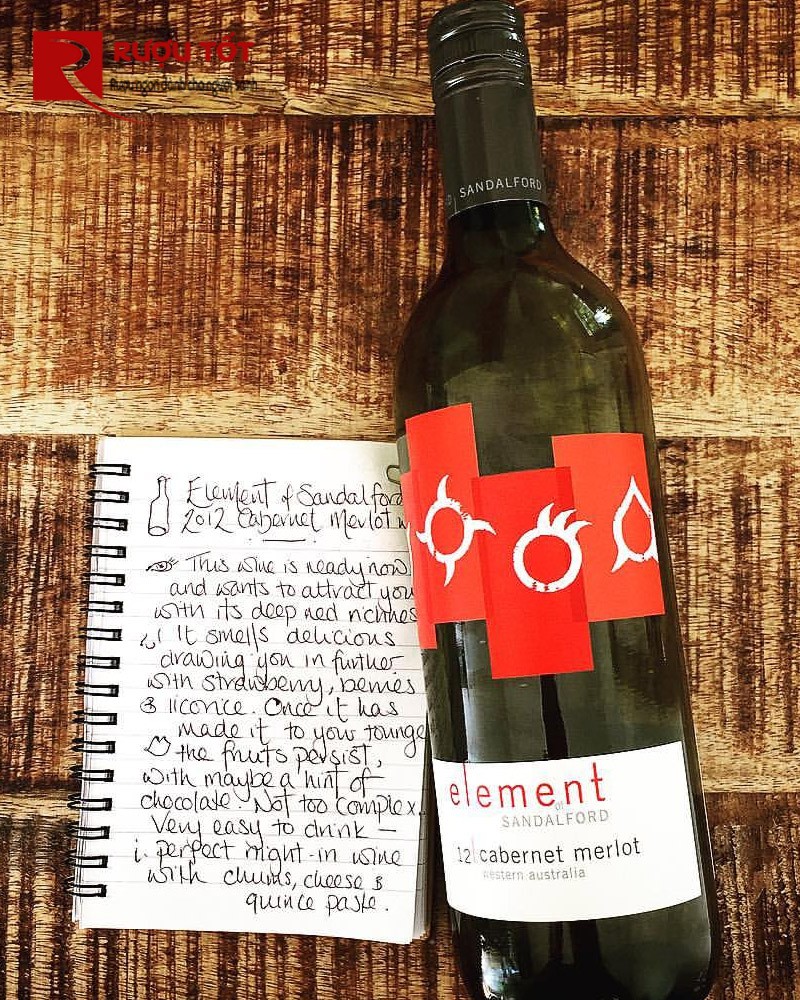 RƯỢU TỐT
SANDALFORD
Element of Sandalford
2012 Cabernet Merlot
This wine is ready now
and wants to attract you
with its deep red richnes
It smells delicious
drawing you in further
with strawberry, berries
& licorice. Once it has
made it to your tounge
the fruits persist,
with maybe a hint of
chocolate. Not too complex.
Very easy to drink –
i. perfect night-in wine
with chums, cheese &
quince paste.
element
of
SANDALFORD
12 cabernet merlot
western australia